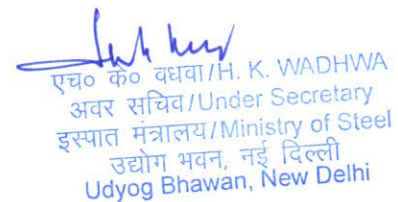 एच० के० वधवा/H. K. WADHWA
अवर सचिव/Under Secretary
इस्पात मंत्रालय/Ministry of Steel
उद्योग भवन, नई दिल्ली
Udyog Bhawan, New Delhi